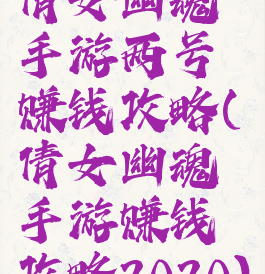 倩女幽魂
手游两号
赚钱攻略(
倩女幽魂
手游赚钱
攻略2020)